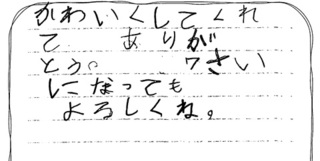 かわいくしてくれ
て ありが
とう。 7さい
になっても
よろしくね。